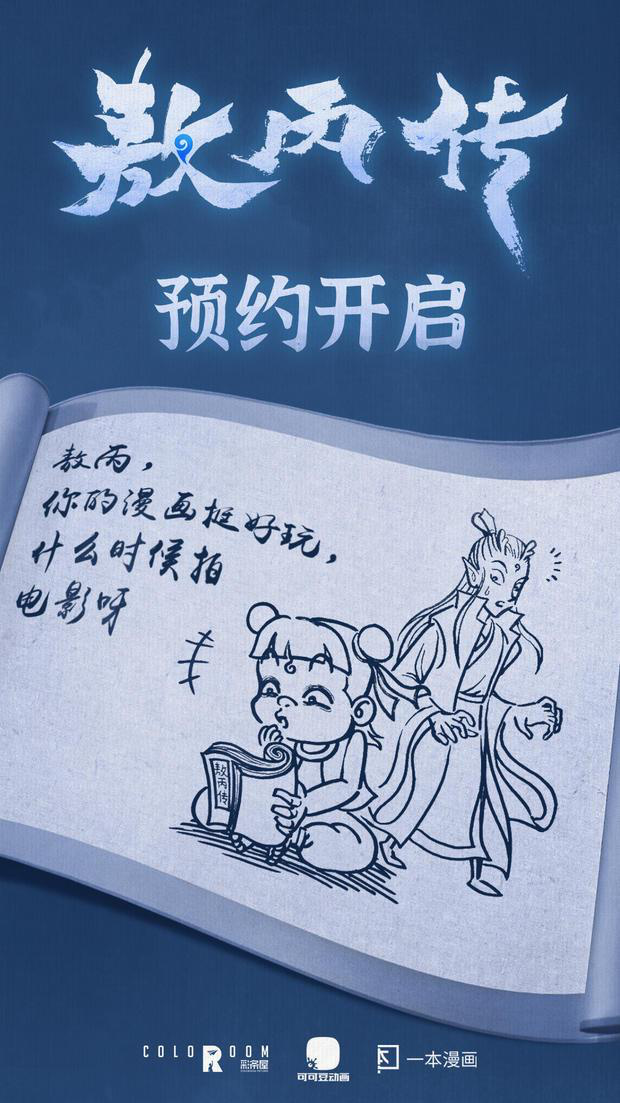 敖丙传
预约开启
敖丙，
你的漫画挺好玩，
什么时候拍
电影呀
敖丙传
COLOROOM
彩条屋
可可豆动画
一本漫画